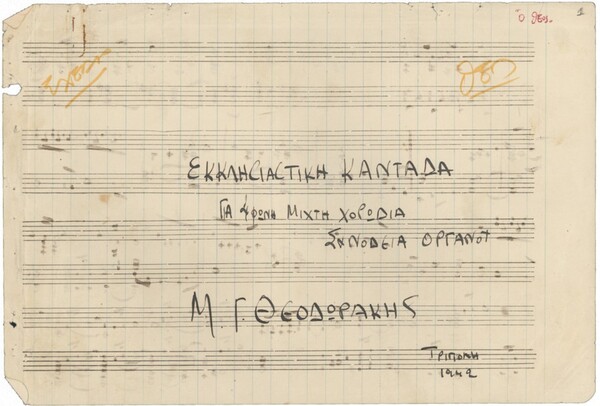 1
ΕΚΚΛΗΣΙΑΣΤΙΚΗ ΚΑΝΤΑΔΑ
ΓΙΑ 4ΦΩΝΗ ΜΙΧΤΗ ΧΟΡΩΔΙΑ
ΣΥΝΟΔΕΙΑ ΟΡΓΑΝΟΥ
Μ. Γ. ΘΕΟΔΩΡΑΚΗΣ
ΤΡΙΠΟΛΗ
1942